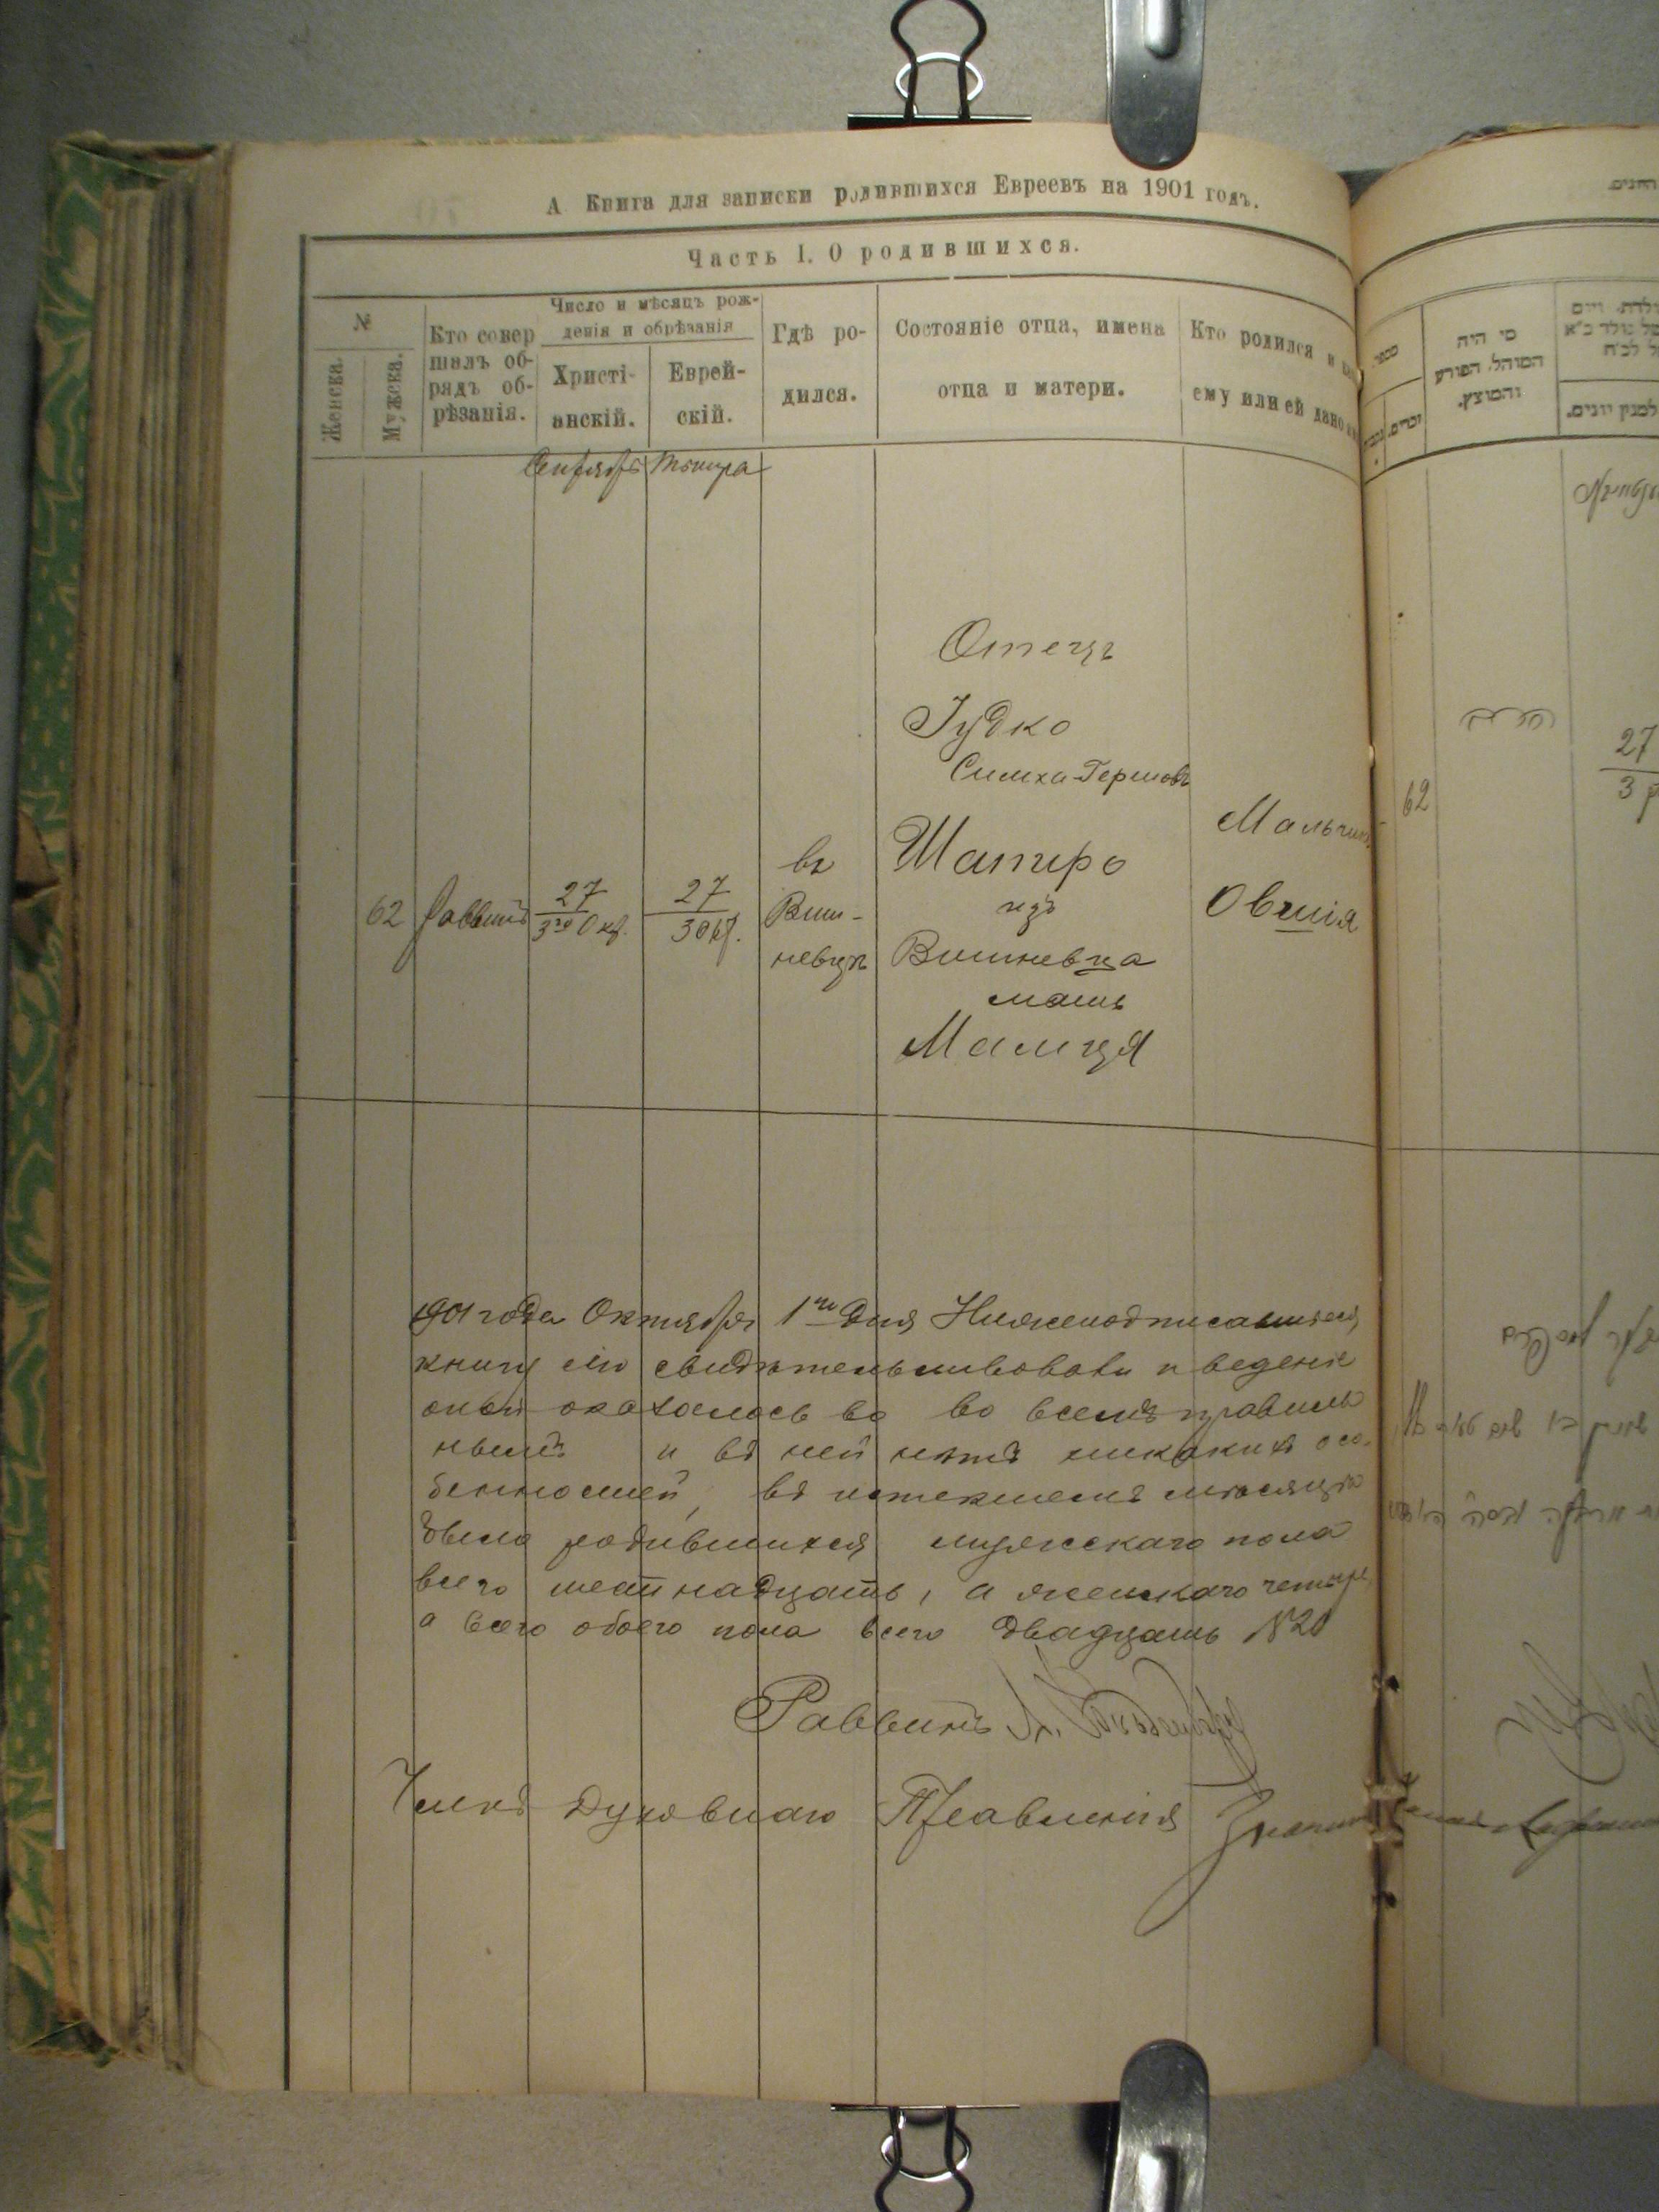 А Книга для записки родившихся Евреевъ на 1901 годъ.
Часть I. О родившихся.
№
Женска.
Мужска.
Кто совер
шалъ об-
рядъ об-
рѣзанія.
Число и мѣсяцъ рож-
денія и обрѣзанія
Христі-
анскій.
Еврей-
скій.
Гдѣ ро-
дился.
Состояніе отца, имена
отца и матери.
Кто родился и
ему или ей дано
Сентябрь Тишра
62 Раввинъ
27
3го Окт.
27
3 Окт.
въ
Виш-
невцѣ
Отецъ
Іудко
Симха-Гершовъ
Шапиро
изъ
Вишневца
мать
Малця
Мальчикъ
Овшія
1901 года Октября 1го дня Нижеподписавшіеся,
книгу сію свидѣтельствовали и веденіе
оной оказалось во во всемъ правиль
нымъ и въ ней нѣтъ никакихъ осо-
бенностей, въ истекшемъ мѣсяцѣ
было родившихся мужскаго пола
всего шестнадцать, а женскаго четыре,
а всего обоего пола всего двадцать №20
Раввинъ
Членъ Духовнаго Правленія
מי היה
המוהל, הפורע
והמוצץ.
זכרים.
62
27
3